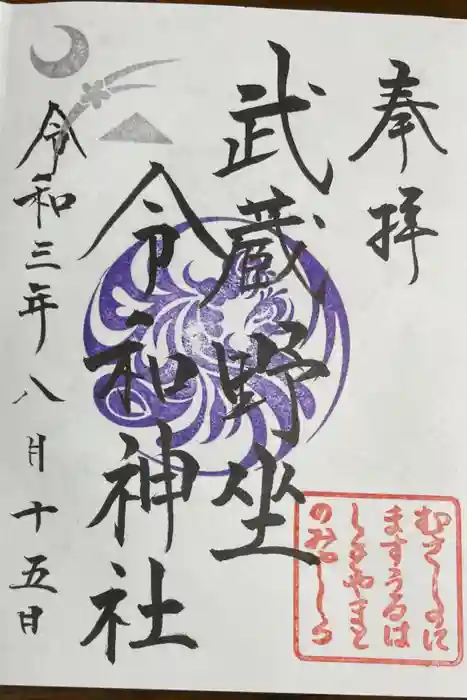 奉拝
武蔵野坐
令和神社
令和三年八月十五日
むさしのに
ますうるは
しきやまと
のみやしろ